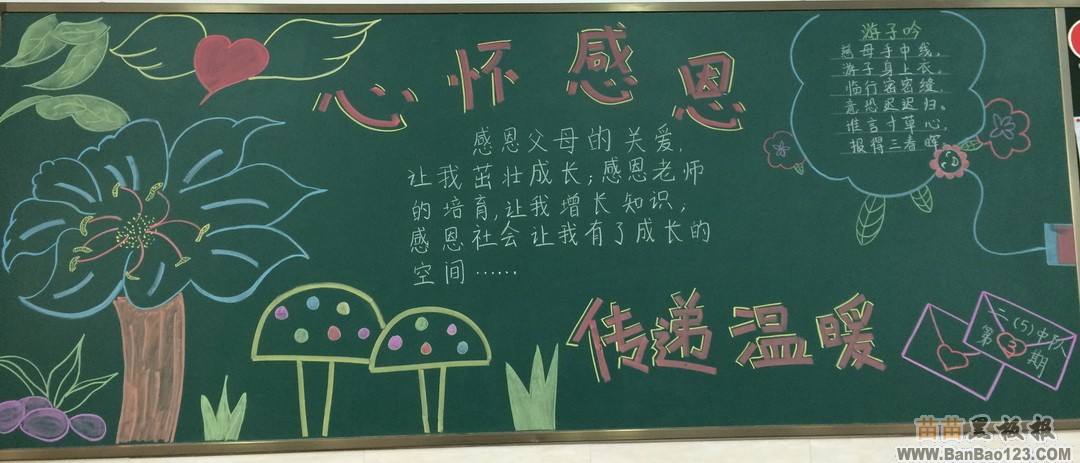 心怀感恩
感恩父母的关爱，
让我茁壮成长；感恩老师
的培育，让我增长知识；
感恩社会让我有了成长的
空间……
传递温暖
游子吟
慈母手中线，
游子身上衣。
临行密密缝，
意恐迟迟归。
谁言寸草心，
报得三春晖
二(5)中队
第3期
苗苗黑板报
www.BanBao123.com